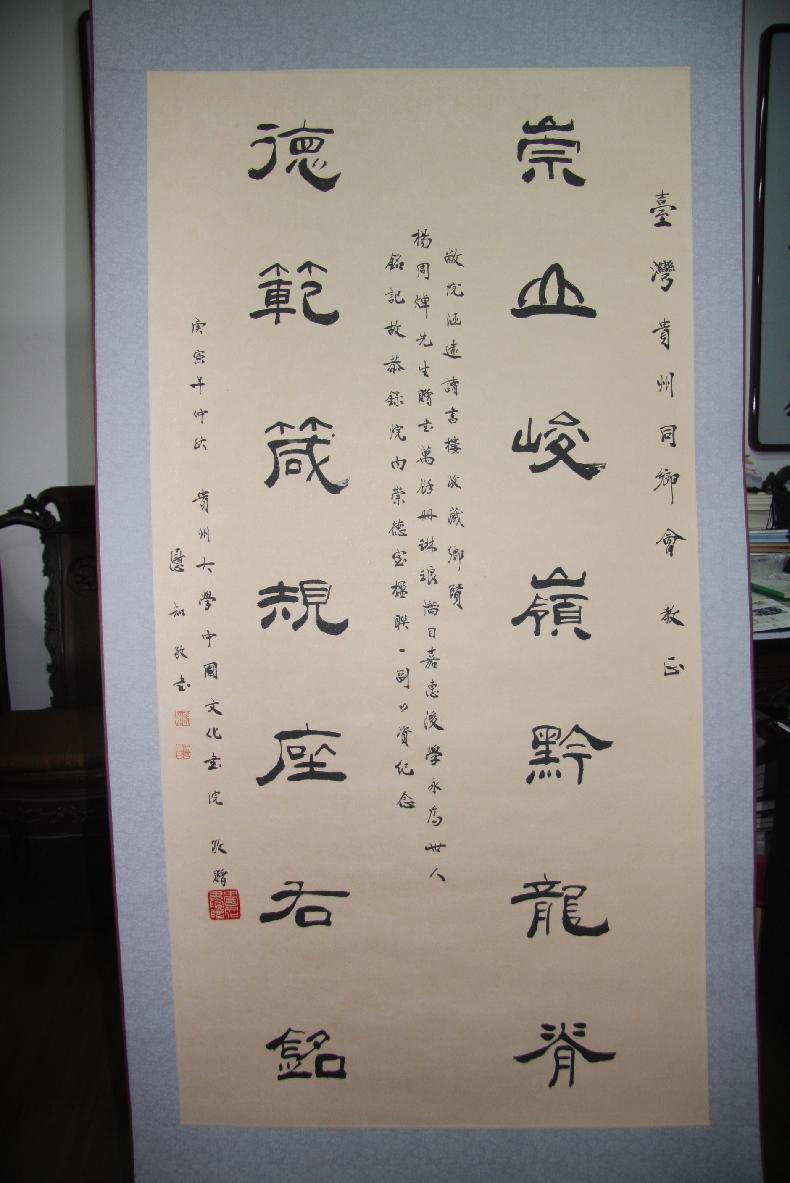 臺灣貴州同鄉會 教正
崇山峻嶺黔龍脊
敝院涵遠讀書樓收藏鄉賢
楊周煒先生贈書萬餘冊琳琅滿目嘉惠後學永為世人
銘記故恭錄院內崇德堂楹聯一副以資紀念
德範箴規座右銘
庚寅年仲秋 貴州大學中國文化書院 敬贈
知敬書